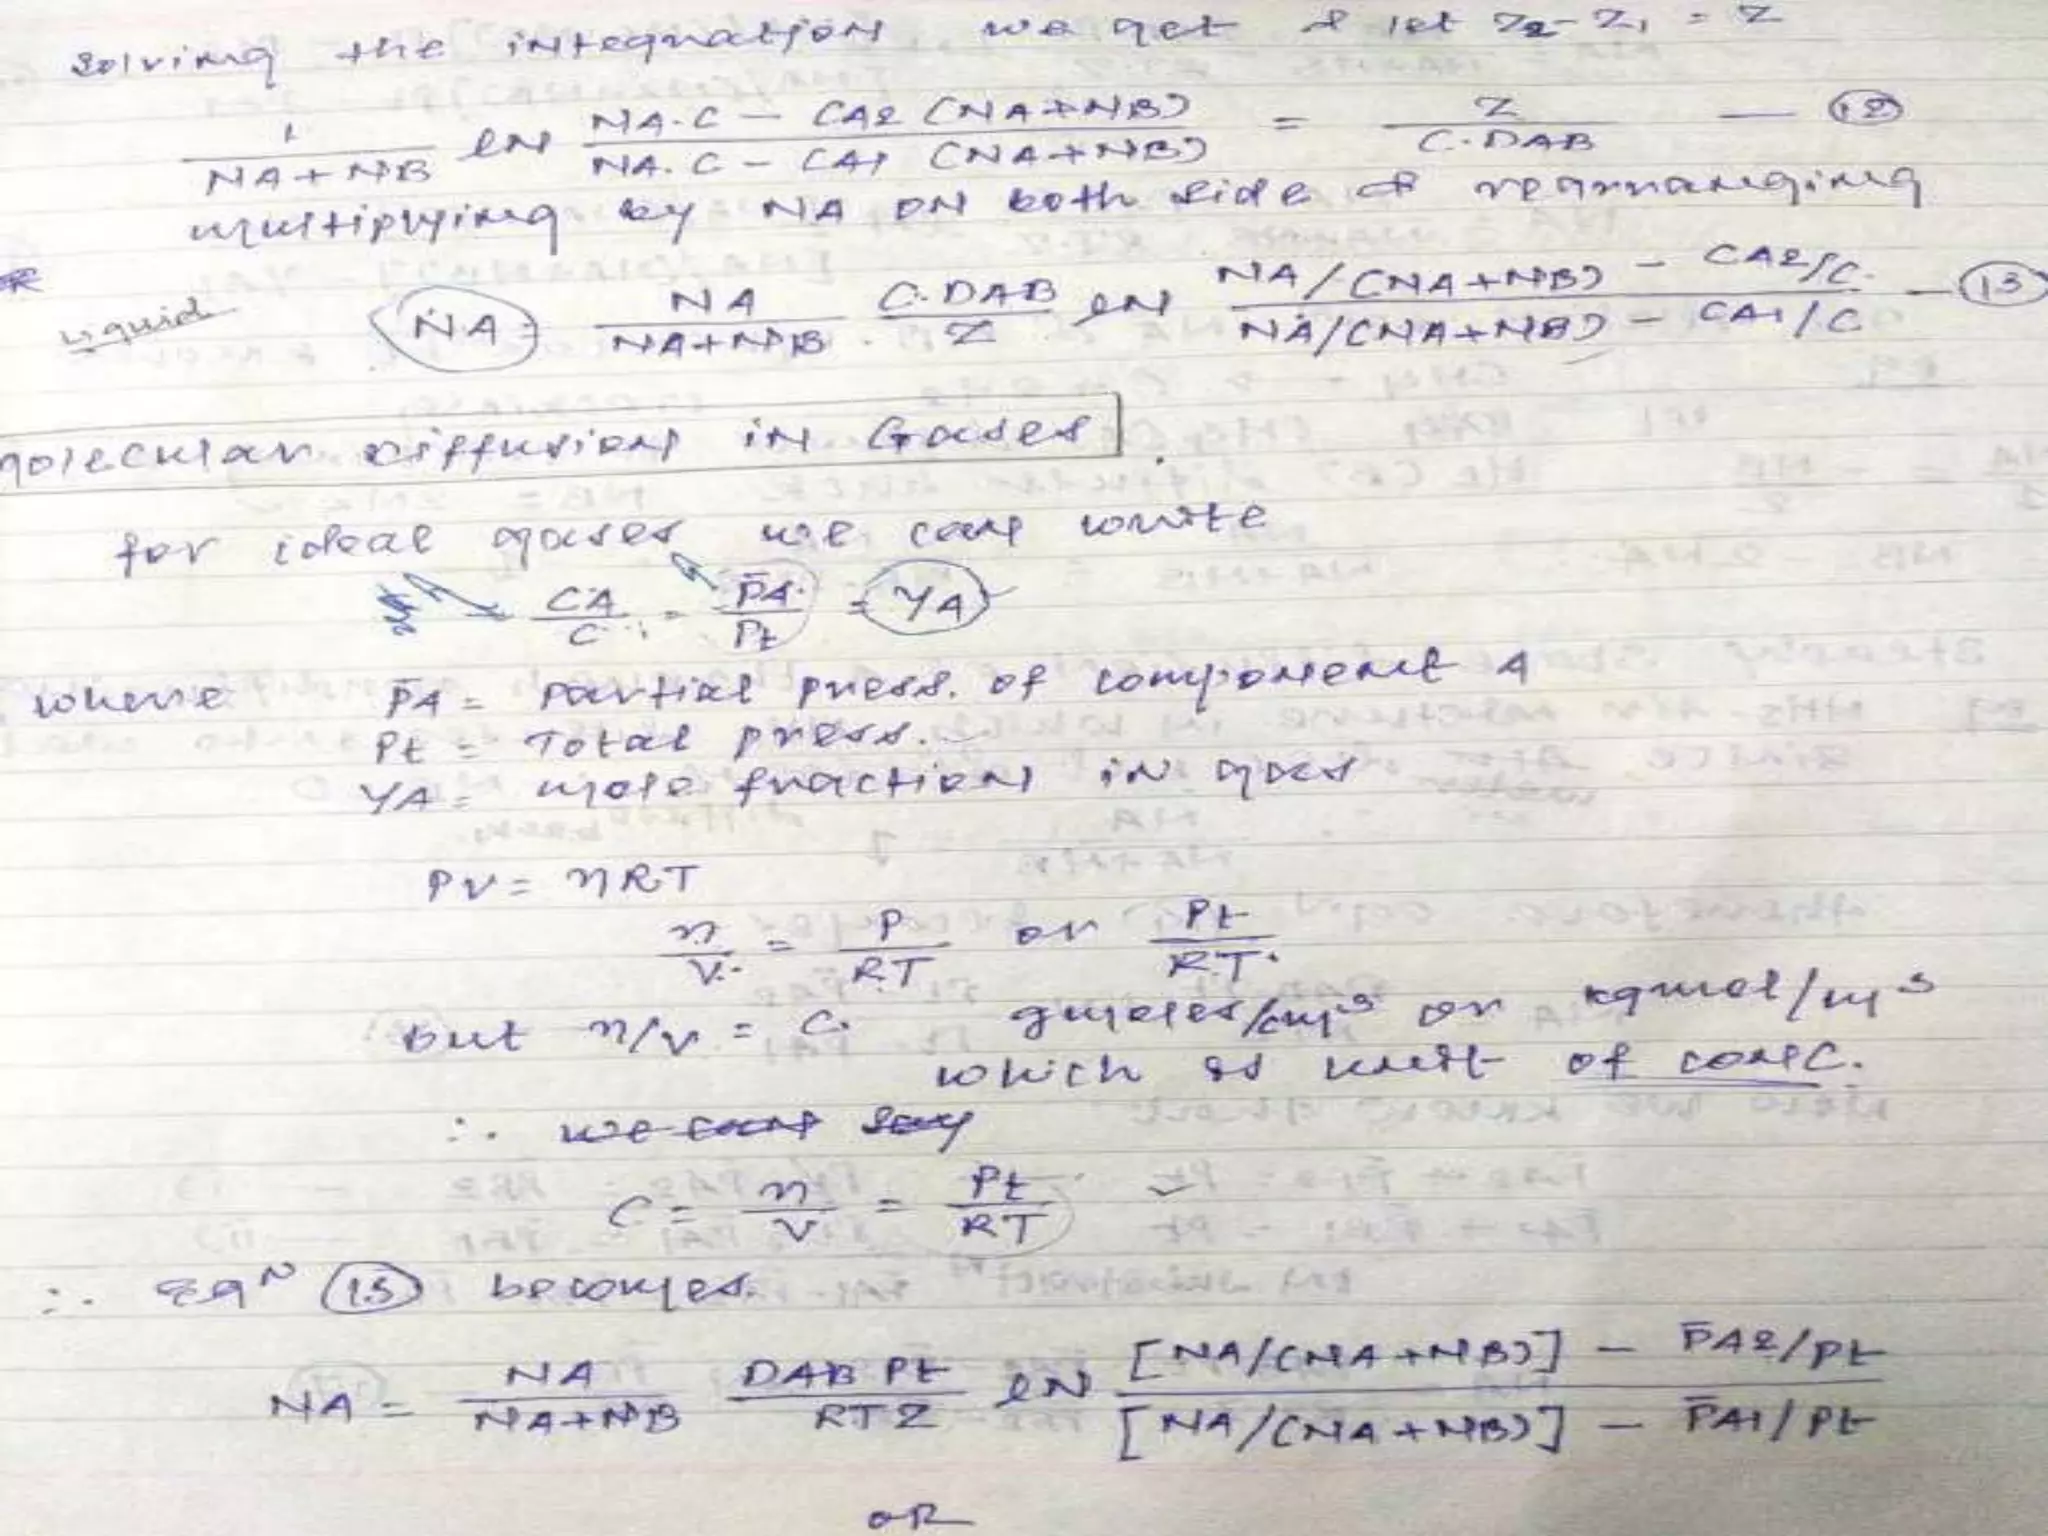 solving the integration we get & let Z2-Z1 = Z
1/(NA+NB) ln (NA.C - CA2 (NA+NB))/(NA.C - CA1 (NA+NB)) = Z/(C.DAB) — (12)
multiplying by NA on both side & rearranging
Liquid NA = NA/(NA+NB) . C.DAB/Z ln (NA/(NA+NB) - CA2/C)/(NA/(NA+NB) - CA1/C) — (13)
Molecular diffusion in Gases
for ideal gases we can write
CA/C = P̄A/Pt = YA
where P̄A = Partial press. of component A
Pt = Total press.
YA = mole fraction in gas
PV = nRT
n/V = P/RT or Pt/RT
But n/V = C gmoles/cm³ or kgmol/m³
which is unit of conc.
∴ we can say
C = n/V = Pt/RT
∴ Eqn (13) becomes.
NA = NA/(NA+NB) DAB Pt/RTZ ln ([NA/(NA+NB)] - P̄A2/Pt)/([NA/(NA+NB)] - P̄A1/Pt)
OR